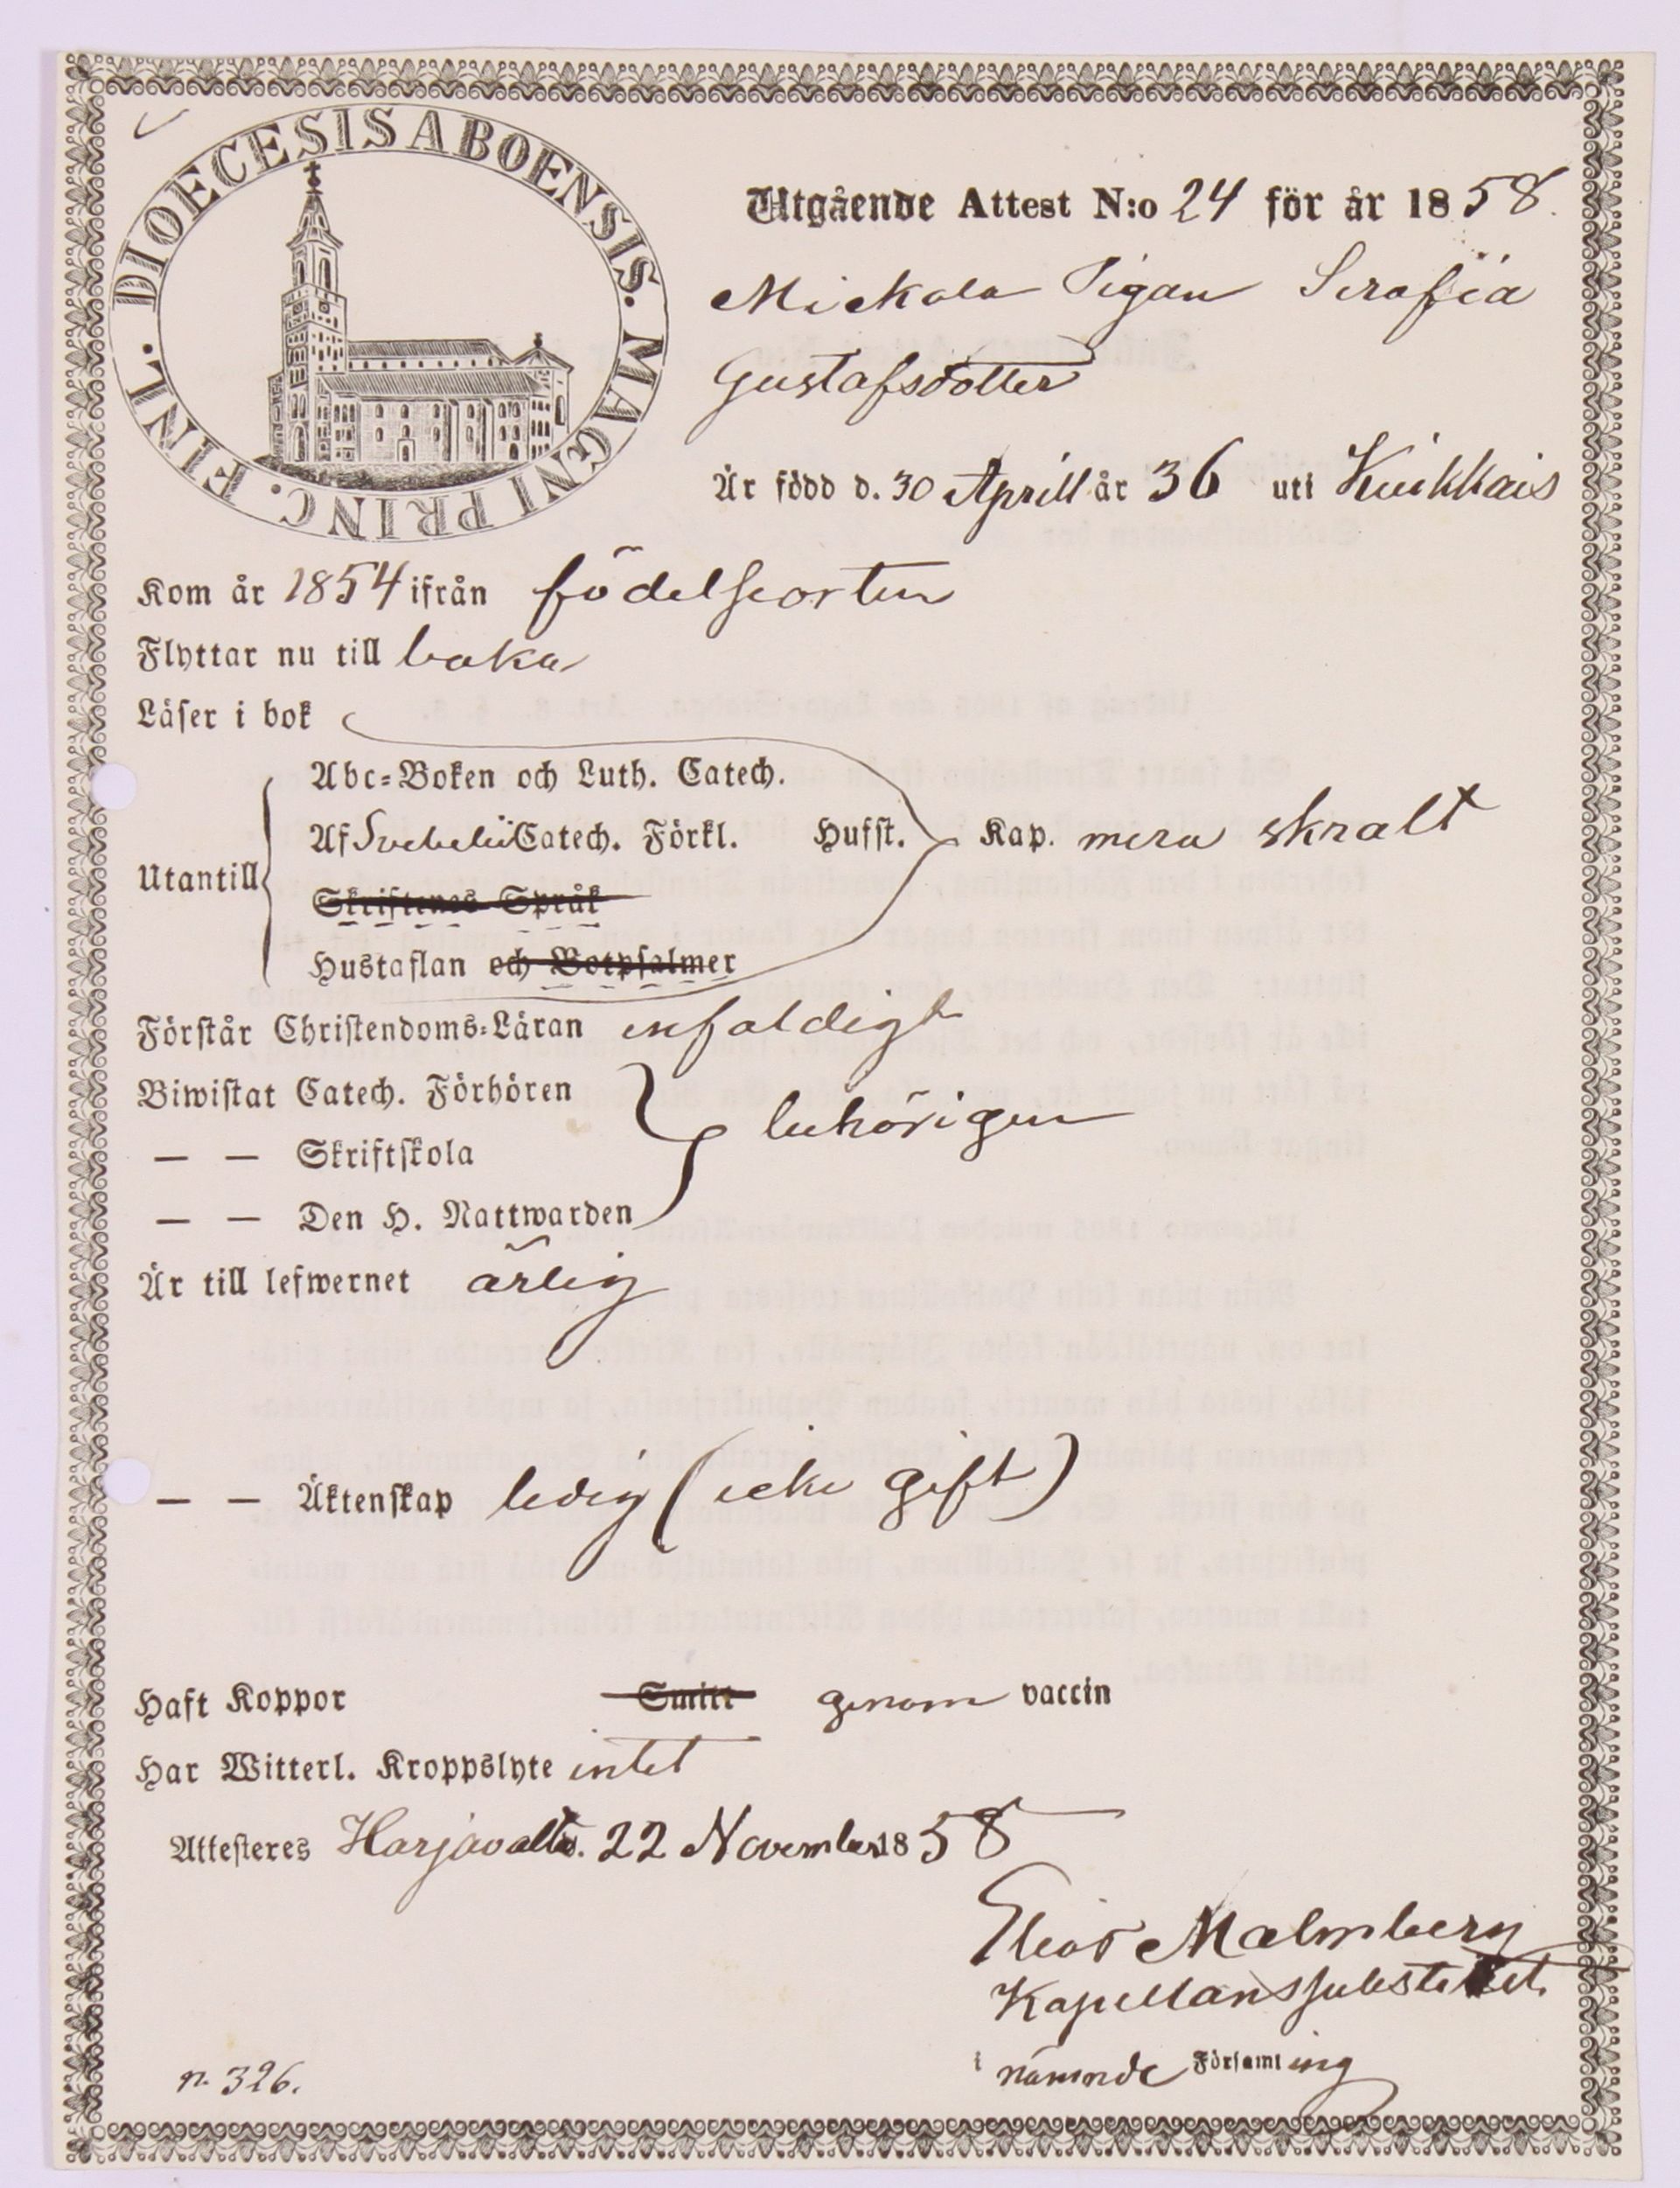 DIOECESIS ABOENSIS. MAGNI PRINC. FINL.
Utgående Attest N:o 24 för år 1858.
Mickola Pigan Serafia
Gustafsdotter
Är född d. 30 Aprill år 36 uti Kuikkais
Kom år 1854 ifrån födelseorten
Flyttar nu till baka
Läser i bok
Abc-Boken och Luth. Catech.
Utantill Af Svebelii Catech. Förkl. Hufst. Kap. mera skralt
Skriftenes Språk
Hustaflan och Botpsalmer
Förstår Christendoms-Läran enfaldigt
Biwistat Catech. Förhören
behörigen
— — Skriftskola
— — Den H. Nattwarden
Är till lefwernet ärlig
— — Äktenskap ledig (icke gift)
Haft Koppor Smitt genom vaccin
Har Witterl. Kroppslyte intet
Attesteres Harjavalta d. 22 November 1858
Elias Malmberg
Kapellanssubstitut.
i nämnde Församling
n. 326.